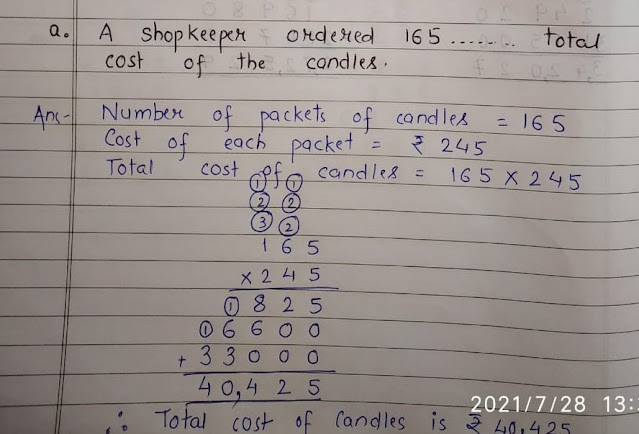 a. A shopkeeper ordered 165 ........ total
cost of the candles.
Ans- Number of packets of candles = 165
Cost of each packet = ₹ 245
Total cost of candles = 165 × 245
① ①
② ②
③ ②
1 6 5
× 2 4 5
① 8 2 5
① 6 6 0 0
+ 3 3 0 0 0
4 0, 4 2 5
2021/7/28 13:
∴ Total cost of Candles is ₹ 40,425